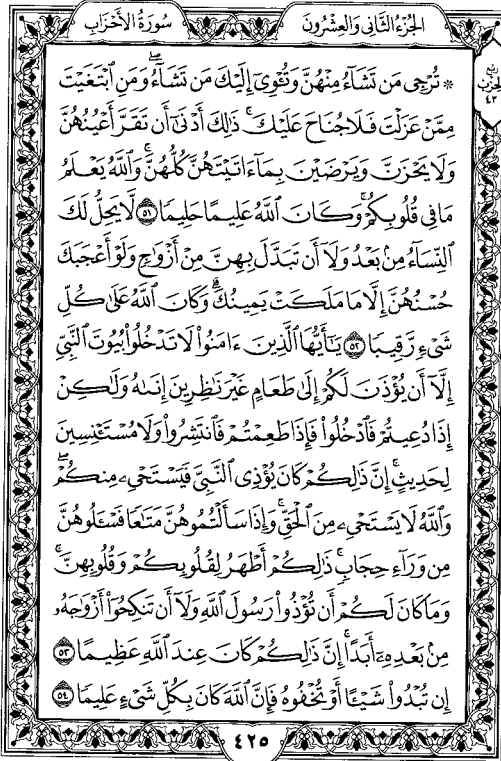 سُورَةُ الْأَحْزَابِ
الجُزْءُ الثَّانِي وَالعِشْرُونَ
رُبع
الحِزْب
٤٣
۞ تُرْجِى مَن تَشَآءُ مِنْهُنَّ وَتُـْٔوِىٓ إِلَيْكَ مَن تَشَآءُۖ وَمَنِ ٱبْتَغَيْتَ
مِمَّنْ عَزَلْتَ فَلَا جُنَاحَ عَلَيْكَۚ ذَٰلِكَ أَدْنَىٰٓ أَن تَقَرَّ أَعْيُنُهُنَّ
وَلَا يَحْزَنَّ وَيَرْضَيْنَ بِمَآ ءَاتَيْتَهُنَّ كُلُّهُنَّۚ وَٱللَّهُ يَعْلَمُ
مَا فِى قُلُوبِكُمْۚ وَكَانَ ٱللَّهُ عَلِيمًا حَلِيمًا ٥١ لَّا يَحِلُّ لَكَ
ٱلنِّسَآءُ مِنۢ بَعْدُ وَلَآ أَن تَبَدَّلَ بِهِنَّ مِنْ أَزْوَٰجٍ وَلَوْ أَعْجَبَكَ
حُسْنُهُنَّ إِلَّا مَا مَلَكَتْ يَمِينُكَۗ وَكَانَ ٱللَّهُ عَلَىٰ كُلِّ
شَىْءٍ رَّقِيبًا ٥٢ يَٰٓأَيُّهَا ٱلَّذِينَ ءَامَنُوا۟ لَا تَدْخُلُوا۟ بُيُوتَ ٱلنَّبِىِّ
إِلَّآ أَن يُؤْذَنَ لَكُمْ إِلَىٰ طَعَامٍ غَيْرَ نَٰظِرِينَ إِنَىٰهُ وَلَٰكِنْ
إِذَا دُعِيتُمْ فَٱدْخُلُوا۟ فَإِذَا طَعِمْتُمْ فَٱنتَشِرُوا۟ وَلَا مُسْتَـْٔنِسِينَ
لِحَدِيثٍۚ إِنَّ ذَٰلِكُمْ كَانَ يُؤْذِى ٱلنَّبِىَّ فَيَسْتَحْىِۦ مِنكُمْۖ
وَٱللَّهُ لَا يَسْتَحْىِۦ مِنَ ٱلْحَقِّۚ وَإِذَا سَأَلْتُمُوهُنَّ مَتَٰعًا فَسْـَٔلُوهُنَّ
مِن وَرَآءِ حِجَابٍۚ ذَٰلِكُمْ أَطْهَرُ لِقُلُوبِكُمْ وَقُلُوبِهِنَّۚ
وَمَا كَانَ لَكُمْ أَن تُؤْذُوا۟ رَسُولَ ٱللَّهِ وَلَآ أَن تَنكِحُوٓا۟ أَزْوَٰجَهُۥ
مِنۢ بَعْدِهِۦٓ أَبَدًاۚ إِنَّ ذَٰلِكُمْ كَانَ عِندَ ٱللَّهِ عَظِيمًا ٥٣
إِن تُبْدُوا۟ شَيْـًٔا أَوْ تُخْفُوهُ فَإِنَّ ٱللَّهَ كَانَ بِكُلِّ شَىْءٍ عَلِيمًا ٥٤
٤٢٥